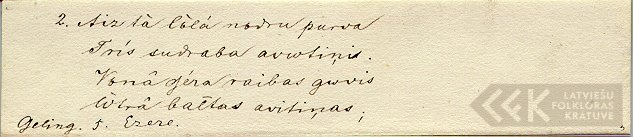 2. Aiz tā lōlá nodru purva
Trīs sudraba avwtiņi.
Vonā dzēra raibas gwvis
Ūtrā baltas avitiņas;
Geling. 5. Ezere.
LATVIEŠU
FOLKLORAS
KRĀTUVE